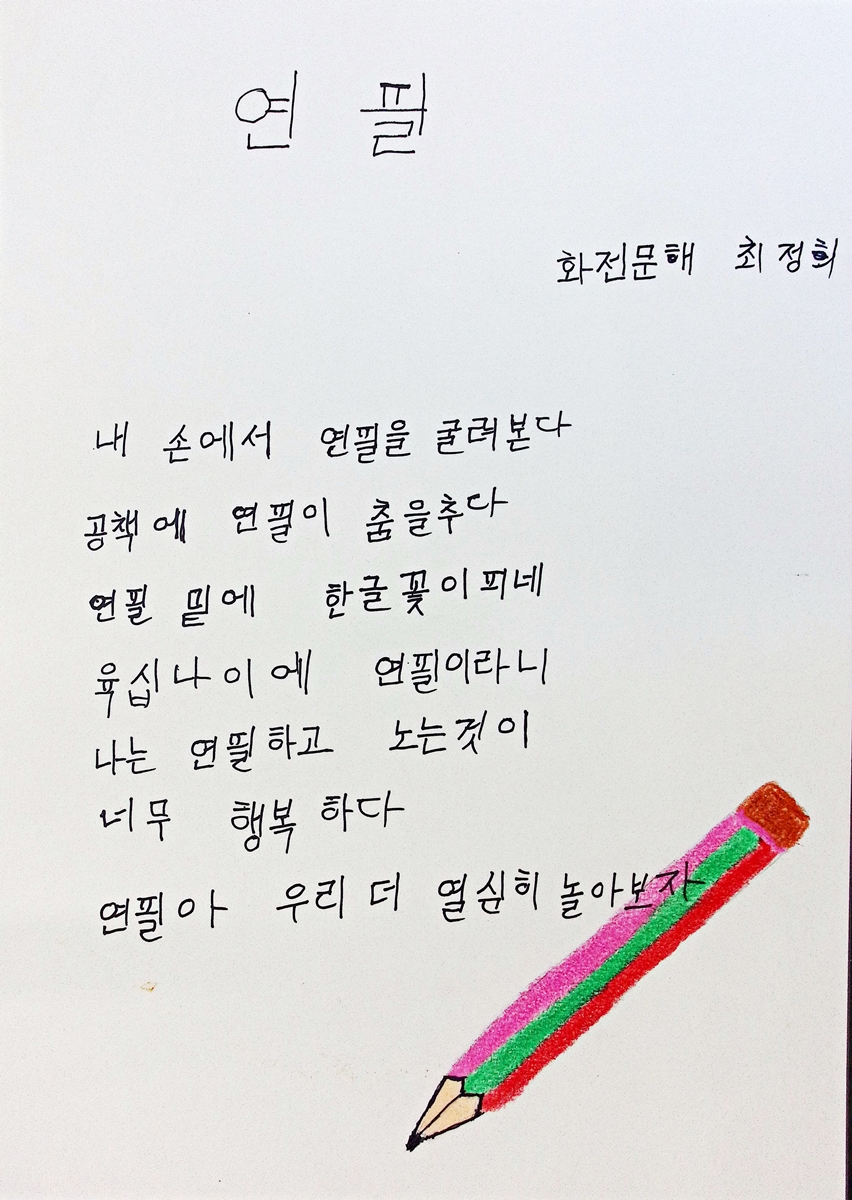 연필
화전문해 최정희
내 손에서 연필을 굴려본다
공책에 연필이 춤을추다
연필 밑에 한글꽃이피네
육십나이에 연필이라니
나는 연필하고 노는것이
너무 행복하다
연필아 우리 더 열싣히 놀아보자